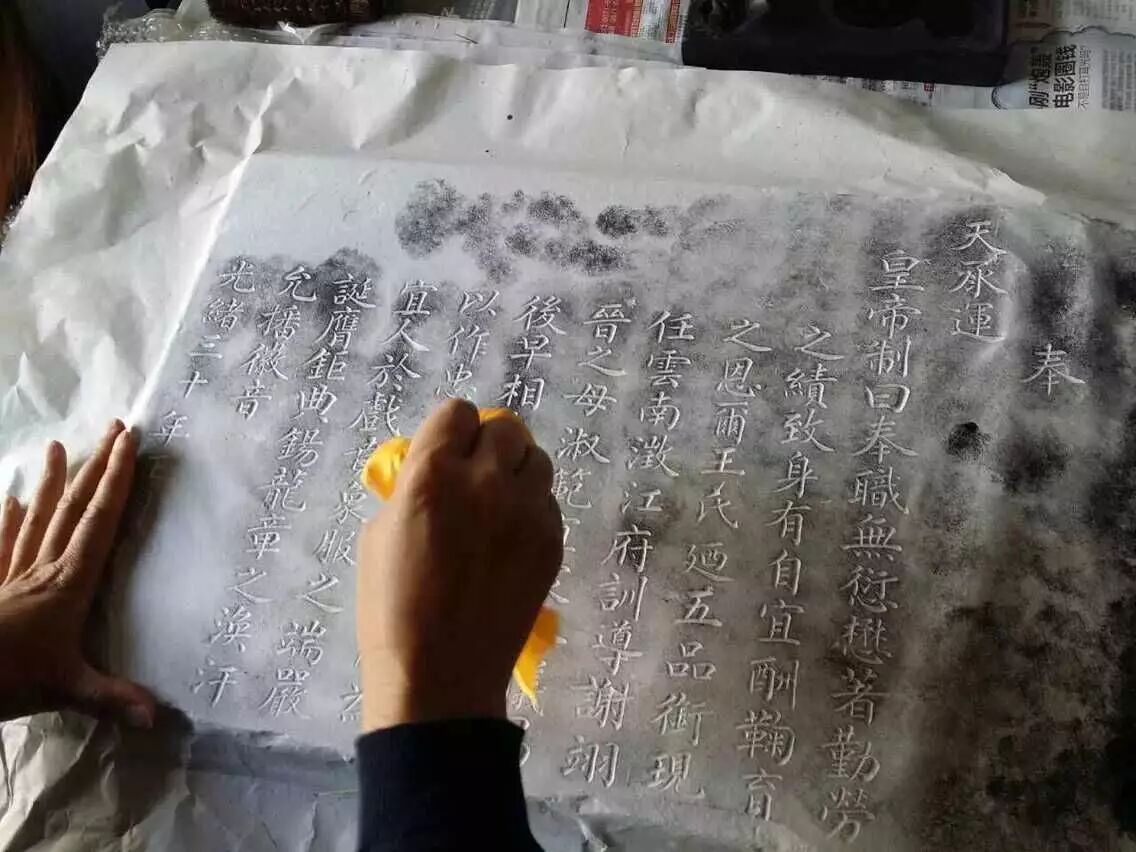 奉
天承運
皇帝制曰奉職無愆懋著勤勞
之績致身有自宜酬鞠育
之恩爾王氏廼五品銜現
任雲南澂江府訓導謝翊
晉之母淑範
後早相
以作忠
宜人於戲象服之端嚴
誕膺鉅典錫龍章之渙汗
允播徽音
光緒三十年
电影圈钱